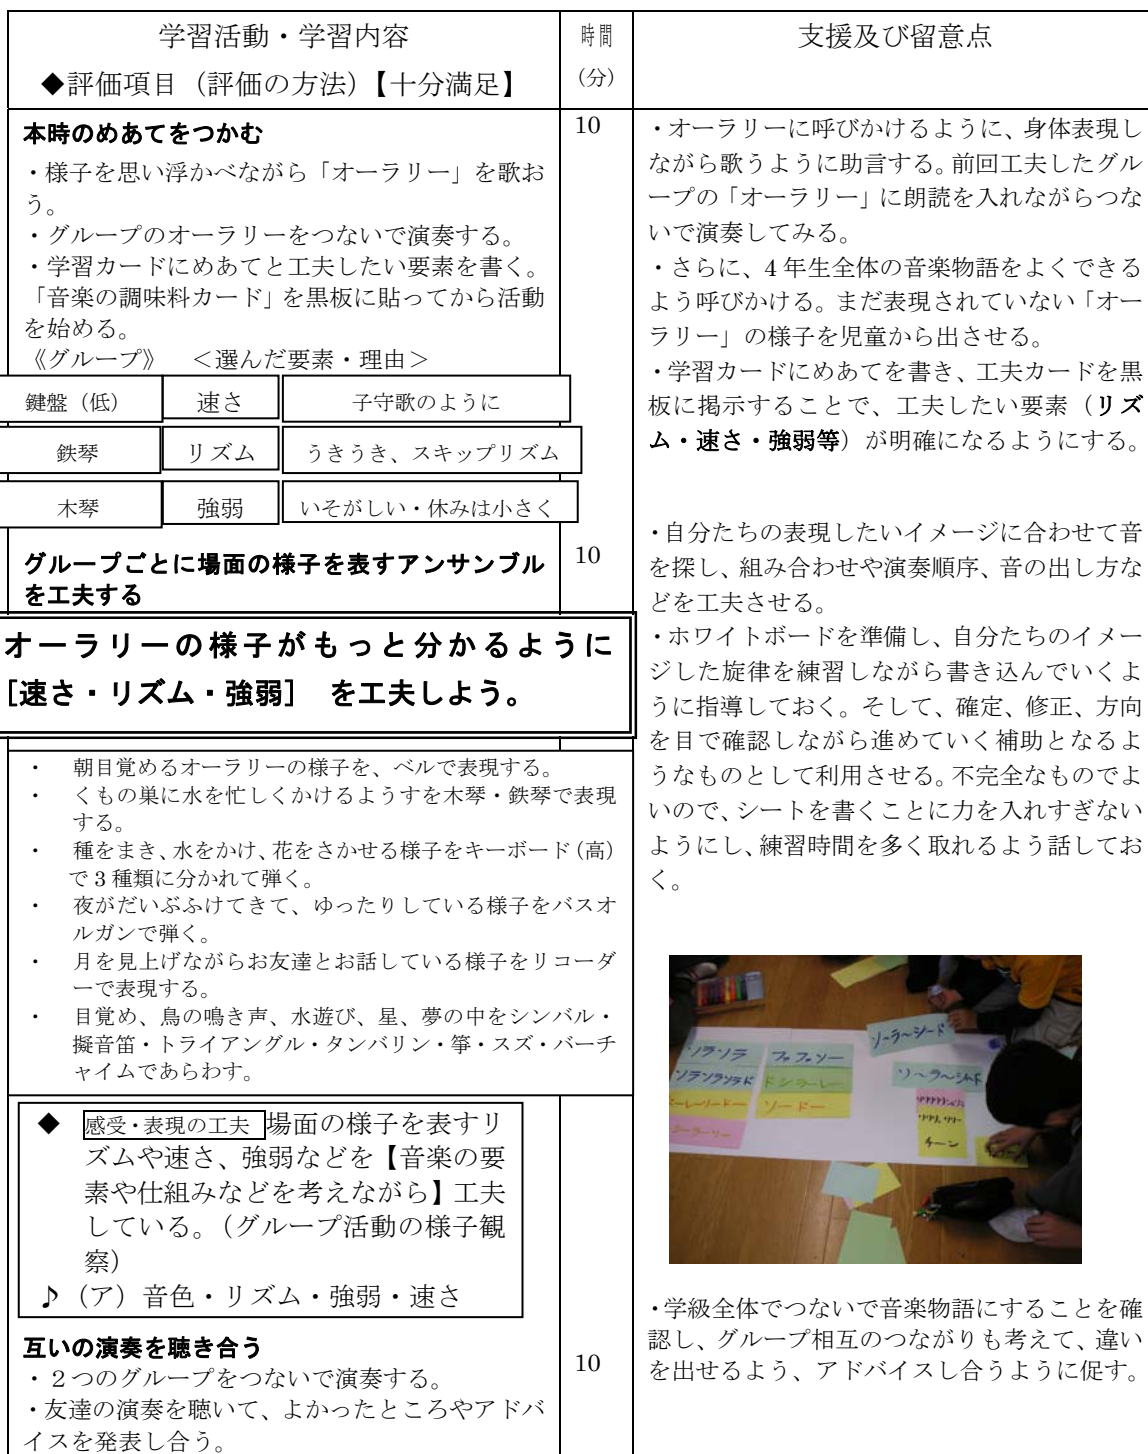 学習活動・学習内容
◆評価項目（評価の方法）【十分満足】
時間
（分）
支援及び留意点
本時のめあてをつかむ
・様子を思い浮かべながら「オーラリー」を歌お
う。
・グループのオーラリーをつないで演奏する。
・学習カードにめあてと工夫したい要素を書く。
「音楽の調味料カード」を黒板に貼ってから活動
を始める。
《グループ》　＜選んだ要素・理由＞
鍵盤（低）　速さ　子守歌のように
鉄琴　リズム　うきうき、スキップリズム
木琴　強弱　いそがしい・休みは小さく
グループごとに場面の様子を表すアンサンブル
を工夫する
オーラリーの様子がもっと分かるように
[速さ・リズム・強弱]　を工夫しよう。
・　朝目覚めるオーラリーの様子を、ベルで表現する。
・　くもの巣に水を忙しくかけるようすを木琴・鉄琴で表現
する。
・　種をまき、水をかけ、花をさかせる様子をキーボード（高）
で3種類に分かれて弾く。
・　夜がだいぶふけてきて、ゆったりしている様子をバスオ
ルガンで弾く。
・　月を見上げながらお友達とお話している様子をリコーダ
ーで表現する。
・　目覚め、鳥の鳴き声、水遊び、星、夢の中をシンバル・
擬音笛・トライアングル・タンバリン・箏・スズ・バーチ
ャイムであらわす。
◆　感受・表現の工夫　場面の様子を表すリ
ズムや速さ、強弱などを【音楽の要
素や仕組みなどを考えながら】工夫
している。（グループ活動の様子観
察）
♪（ア）音色・リズム・強弱・速さ
互いの演奏を聴き合う
・２つのグループをつないで演奏する。
・友達の演奏を聴いて、よかったところやアドバ
イスを発表し合う。
10
10
10
・オーラリーに呼びかけるように、身体表現し
ながら歌うように助言する。前回工夫したグル
ープの「オーラリー」に朗読を入れながらつな
いで演奏してみる。
・さらに、4年生全体の音楽物語をよくできる
よう呼びかける。まだ表現されていない「オー
ラリー」の様子を児童から出させる。
・学習カードにめあてを書き、工夫カードを黒
板に掲示することで、工夫したい要素（リズ
ム・速さ・強弱等）が明確になるようにする。
・自分たちの表現したいイメージに合わせて音
を探し、組み合わせや演奏順序、音の出し方な
どを工夫させる。
・ホワイトボードを準備し、自分たちのイメー
ジした旋律を練習しながら書き込んでいくよ
うに指導しておく。そして、確定、修正、方向
を目で確認しながら進めていく補助となるよ
うなものとして利用させる。不完全なものでよ
いので、シートを書くことに力を入れすぎない
ようにし、練習時間を多く取れるよう話してお
く。
ソーラ〜シード
ソラソラ
ファファソー
ソランランラド
ドシラーレー
ソードー
チーン
・学級全体でつないで音楽物語にすることを確
認し、グループ相互のつながりも考えて、違い
を出せるよう、アドバイスし合うように促す。